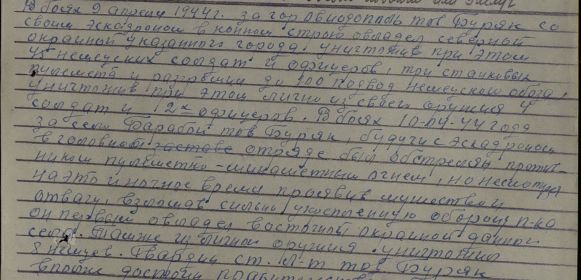 В боях 9 апреля 1944 г. за гор Овидиополь тов Фуряк со
своим эскадроном в конном строю овладел северной
окраиной указанного города, уничтожив при этом
немецких солдат и офицеров, три станковых
пулемета и разгромил до 100 подвод немецкого обоза,
уничтожив при этом лично из своего оружия 4
солдат и 2х офицеров. В боях 10-04-44 года
за село Барабой тов Фуряк, будучи с эскадроном
в головном отряде был обстрелян против-
ником пулеметно-минометным огнем, но несмотря
на это и ночное время проявив мужество и
отвагу, взломав сильно укрепленную оборону п-ка
он первым овладел восточной окраиной данного
села. Также из личного оружия уничтожил
5 немцев. Гвардии ст. л-т тов Фуряк
вполне достоин